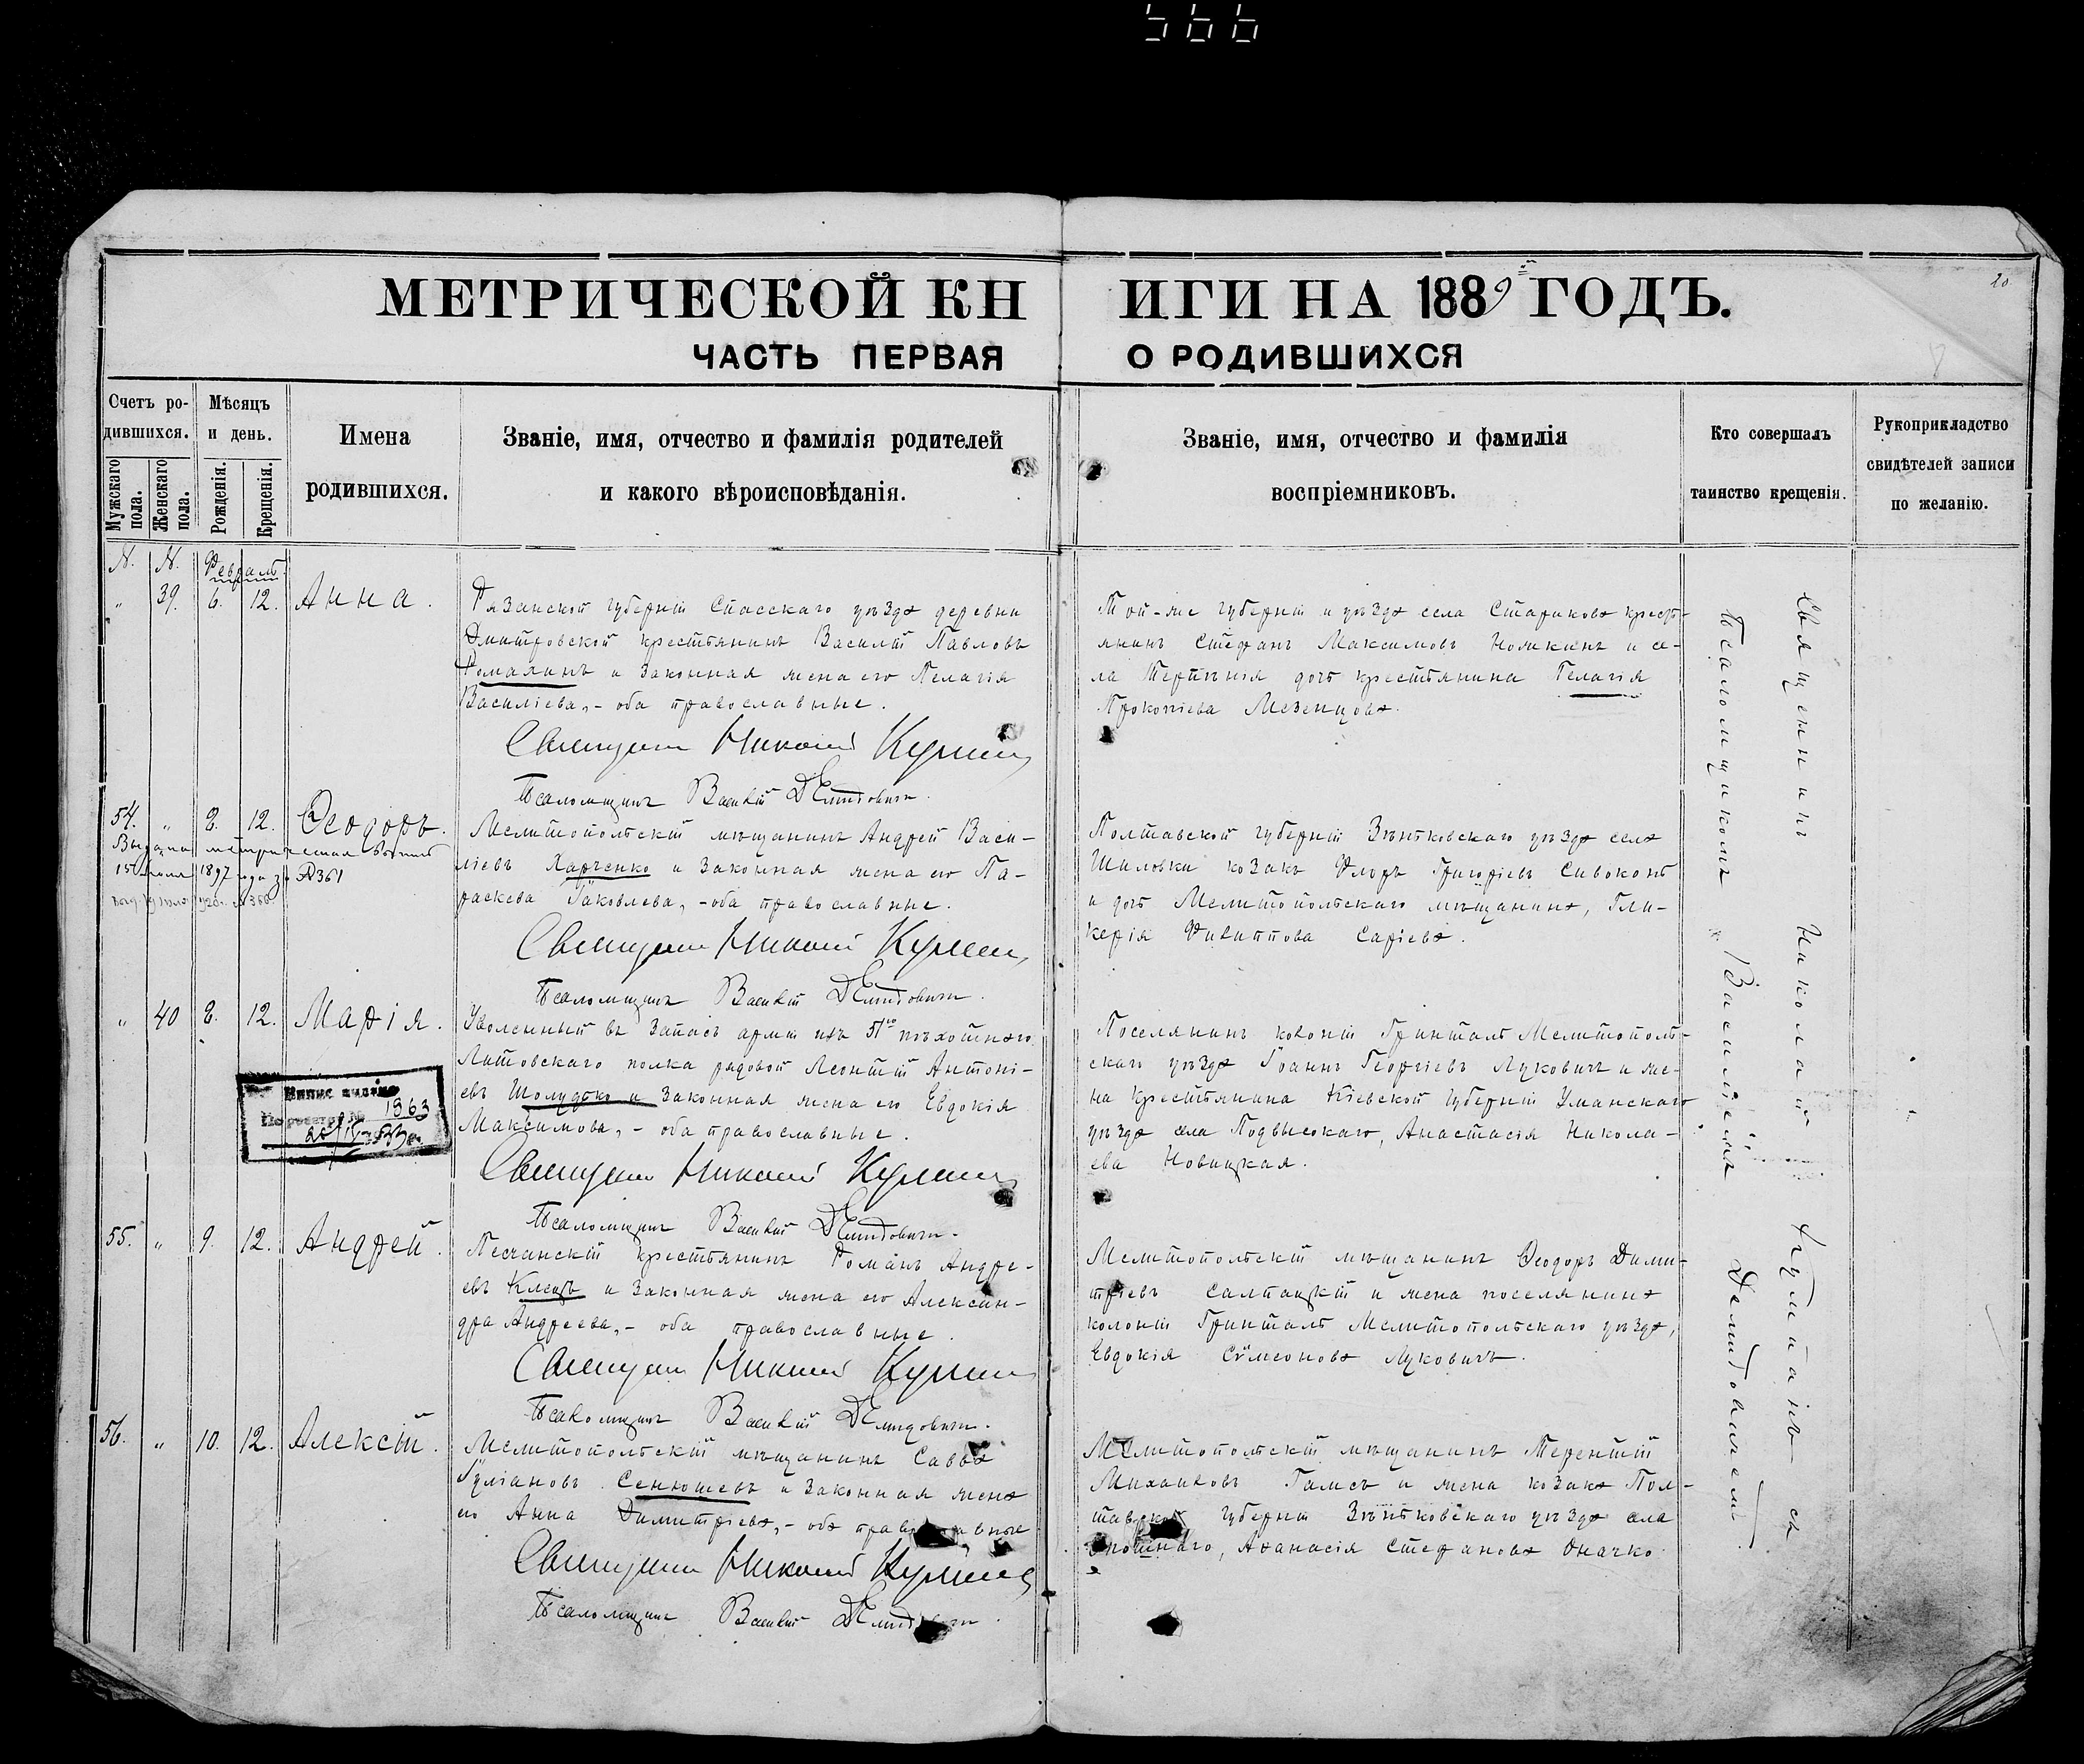 566
20
МЕТРИЧЕСКОЙ КНИГИ НА 1889 ГОДЪ.
ЧАСТЬ ПЕРВАЯ О РОДИВШИХСЯ
Счетъ ро-
дившихся.
Мужскаго пола.
Женскаго пола.
Мѣсяцъ
и день.
Рожденія.
Крещенія.
Имена
родившихся.
Званіе, имя, отчество и фамилія родителей
и какого вѣроисповѣданія.
Званіе, имя, отчество и фамилія
воспріемниковъ.
Кто совершалъ
таинство крещенія.
Рукоприкладство
свидѣтелей записи
по желанію.
N. N. Февраль.
" 39. 6. 12. Анна.
Рязанской губерніи Спасскаго уѣзда деревни
Дмитровской крестьянинъ Василій Павловъ
Ромахинъ и законная жена его Пелагія
Василіева, - оба православные.
Священникъ Николай
Псаломщикъ Василій Демидовичъ.
Той-же губерніи и уѣзда села Старикова крест-
янинъ Стефанъ Максимовъ и се-
ла дочь крестьянина Пелагія
Прокопіева Мезенцова.
54. " 8. 12. Ѳеодоръ.
Выдана метрическая выпись
15 1897 года за №361
Мелитопольскій мѣщанинъ Андрей Васи-
ліевъ Харченко и законная жена его Па-
раскева Іаковлева, - оба православные.
Священникъ Николай
Псаломщикъ Василій Демидовичъ.
Полтавской губерніи Зѣньковскаго уѣзда села
Шиловки козакъ Флоръ Григоріевъ Сивоконь
и дочь Мелитопольскаго мѣщанина, Гли-
керія Филиппова Саріева.
" 40 8. 12. Марія.
1963
Уволенный въ запасъ арміи изъ 51го пѣхотнаго
Литовскаго полка рядовой Леонтій Антоні-
евъ Шолудько и законная жена его Евдокія
Максимова, - оба православные.
Священникъ Николай
Псаломщикъ Василій Демидовичъ.
Поселянинъ колоніи Гринталь Мелитополь-
скаго уѣзда Іоаннъ Георгіевъ Луковичъ и же-
на крестьянина Кіевской губерніи Уманскаго
уѣзда села Подвысокаго, Анастасія Никола-
ева Новицкая.
55. " 9. 12. Андрей.
Песчанскій крестьянинъ Романъ Андре-
евъ и законная жена его Алексан-
дра Андреева, - оба православные.
Священникъ Николай
Псаломщикъ Василій Демидовичъ.
Мелитопольскій мѣщанинъ Ѳеодоръ Дими-
тріевъ и жена поселянина
колоніи Гринталь Мелитопольскаго уѣзда,
Евдокія Сѵмеонова Луковичъ.
56. " 10. 12. Алексій.
Мелитопольскій мѣщанинъ Савва
Іуліановъ Сенюшевъ и законная жена
его Анна Димитріева, - оба православные
Священникъ Николай
Псаломщикъ Василій Демидовичъ.
Мелитопольскій мѣщанинъ Терентій
Михаиловъ и жена козака Пол-
тавской губерніи Зѣньковскаго уѣзда села
Аѳанасія Стефанова Оначко
Священникъ Николай съ
псаломщикомъ Василіемъ Демидовичемъ.